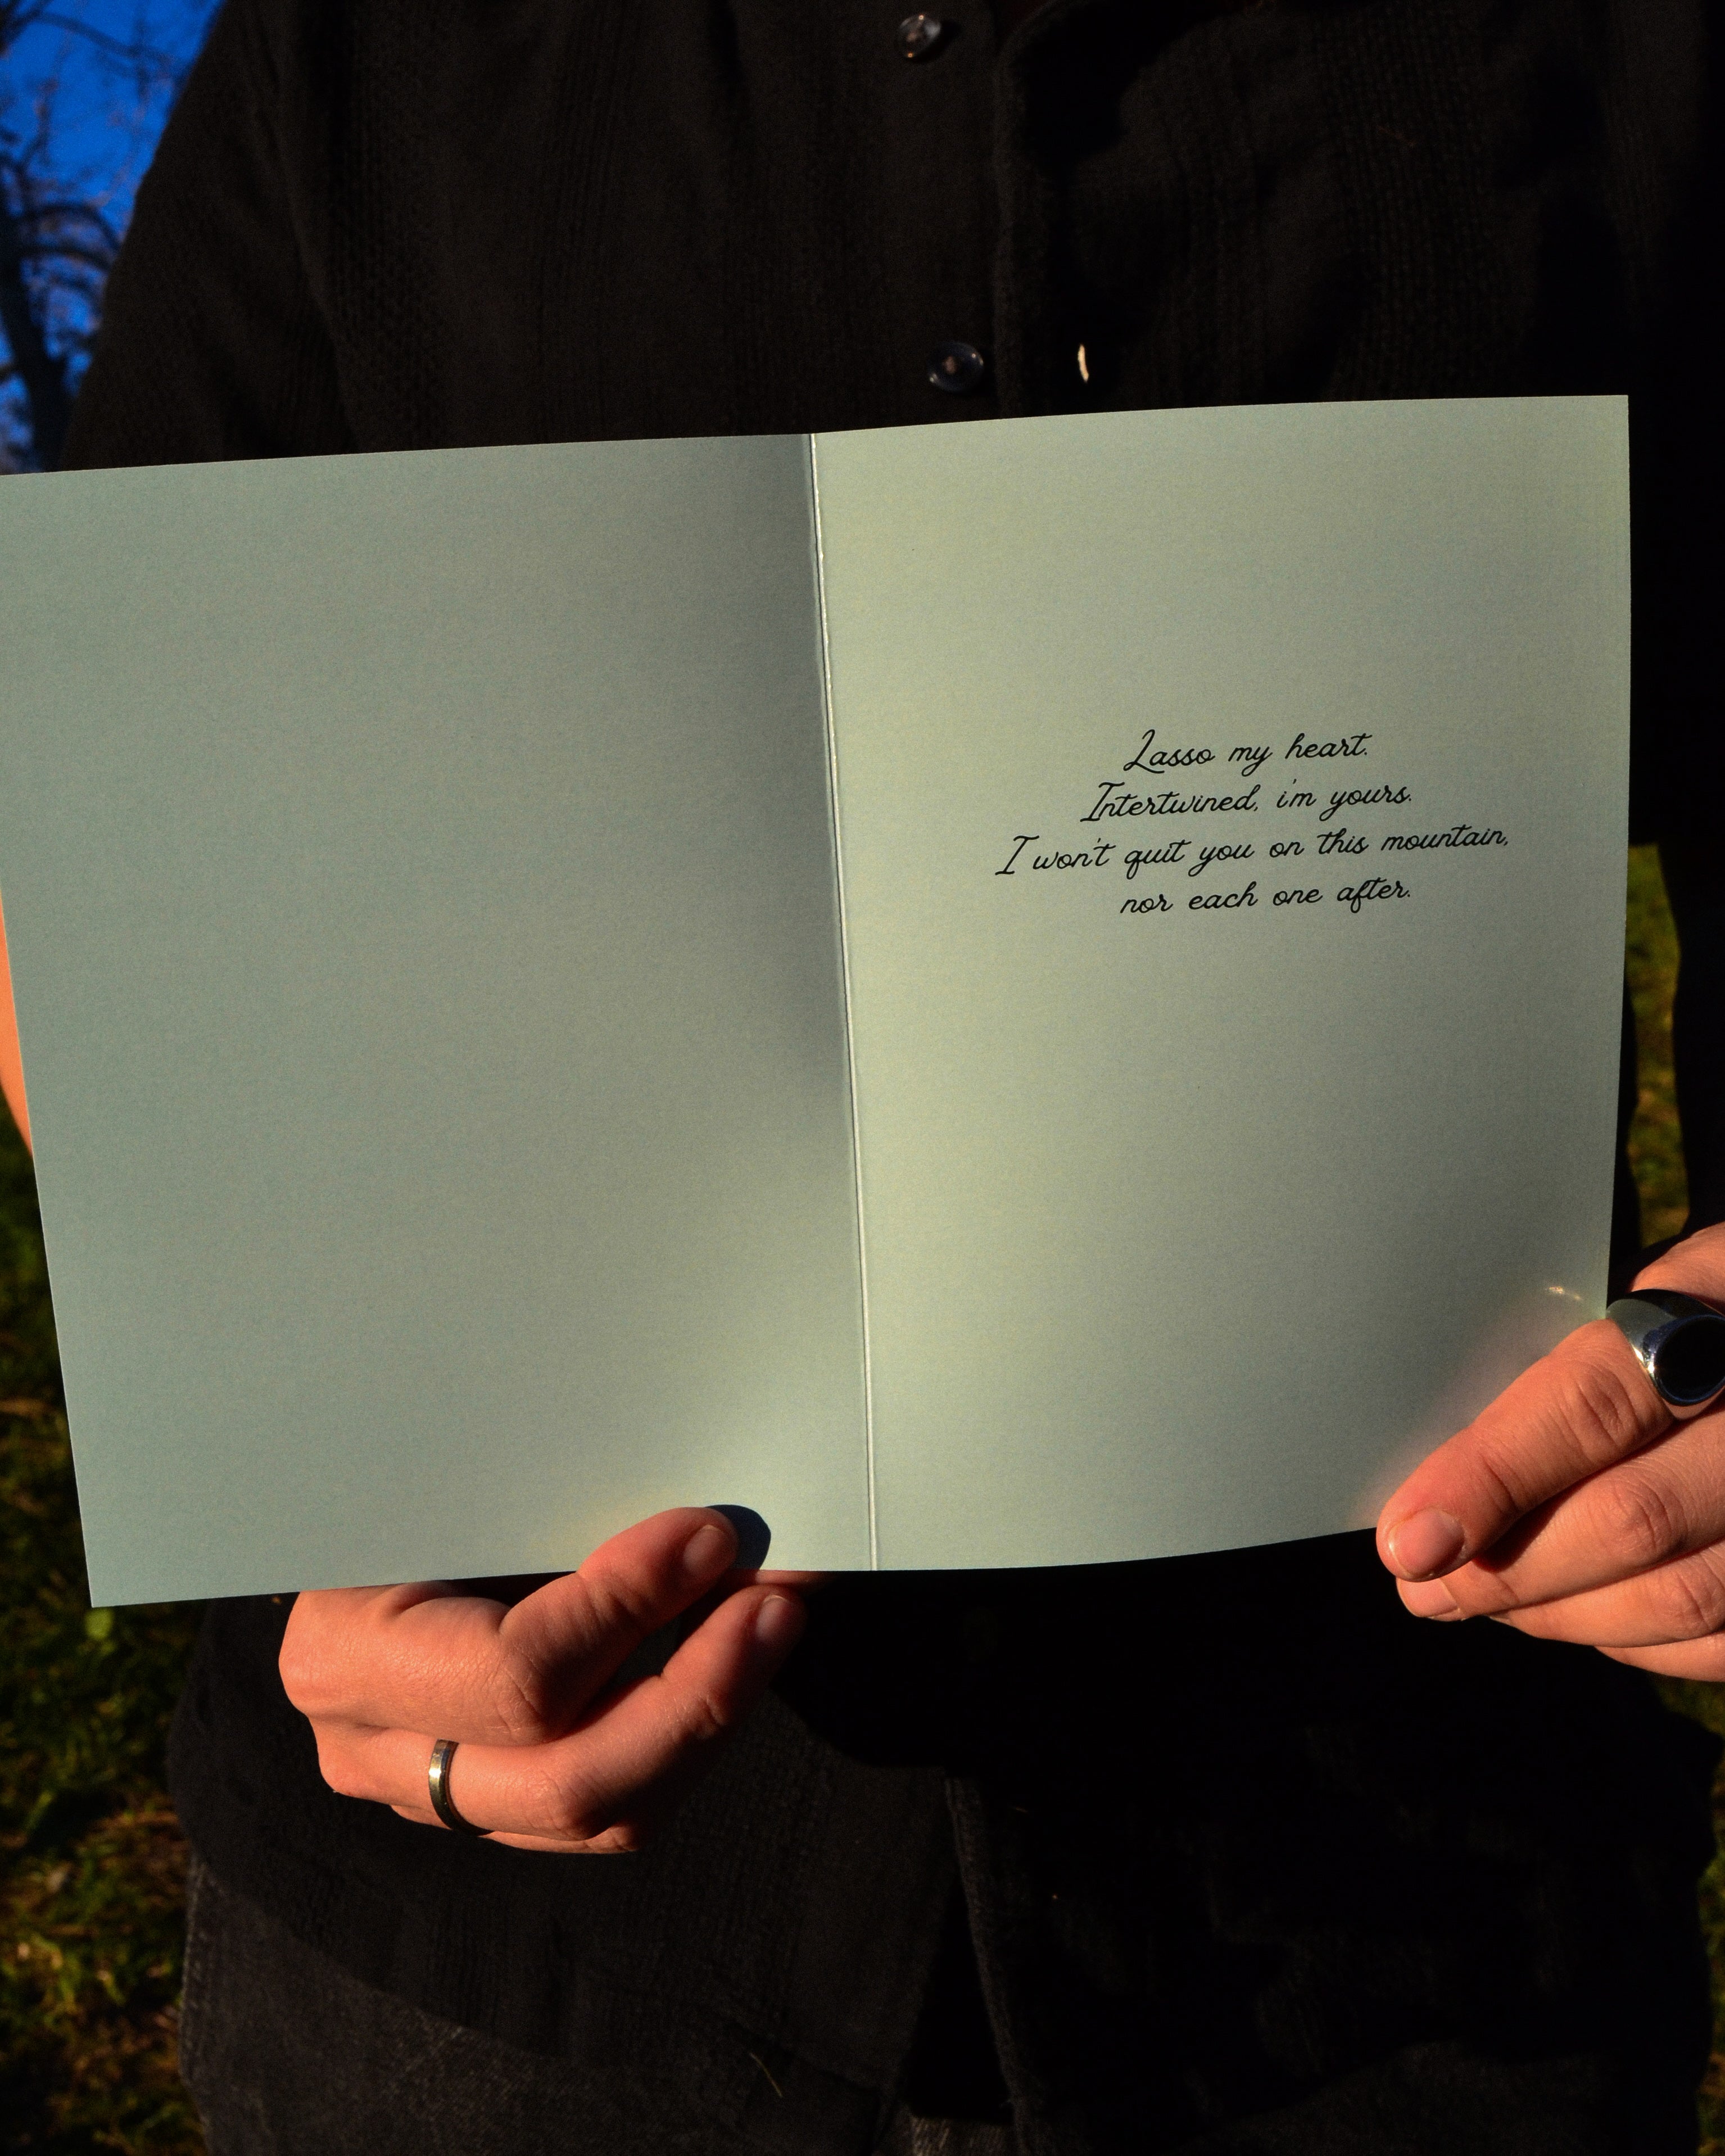 Lasso my heart.
Intertwined, i'm yours.
I won't quit you on this mountain,
nor each one after.